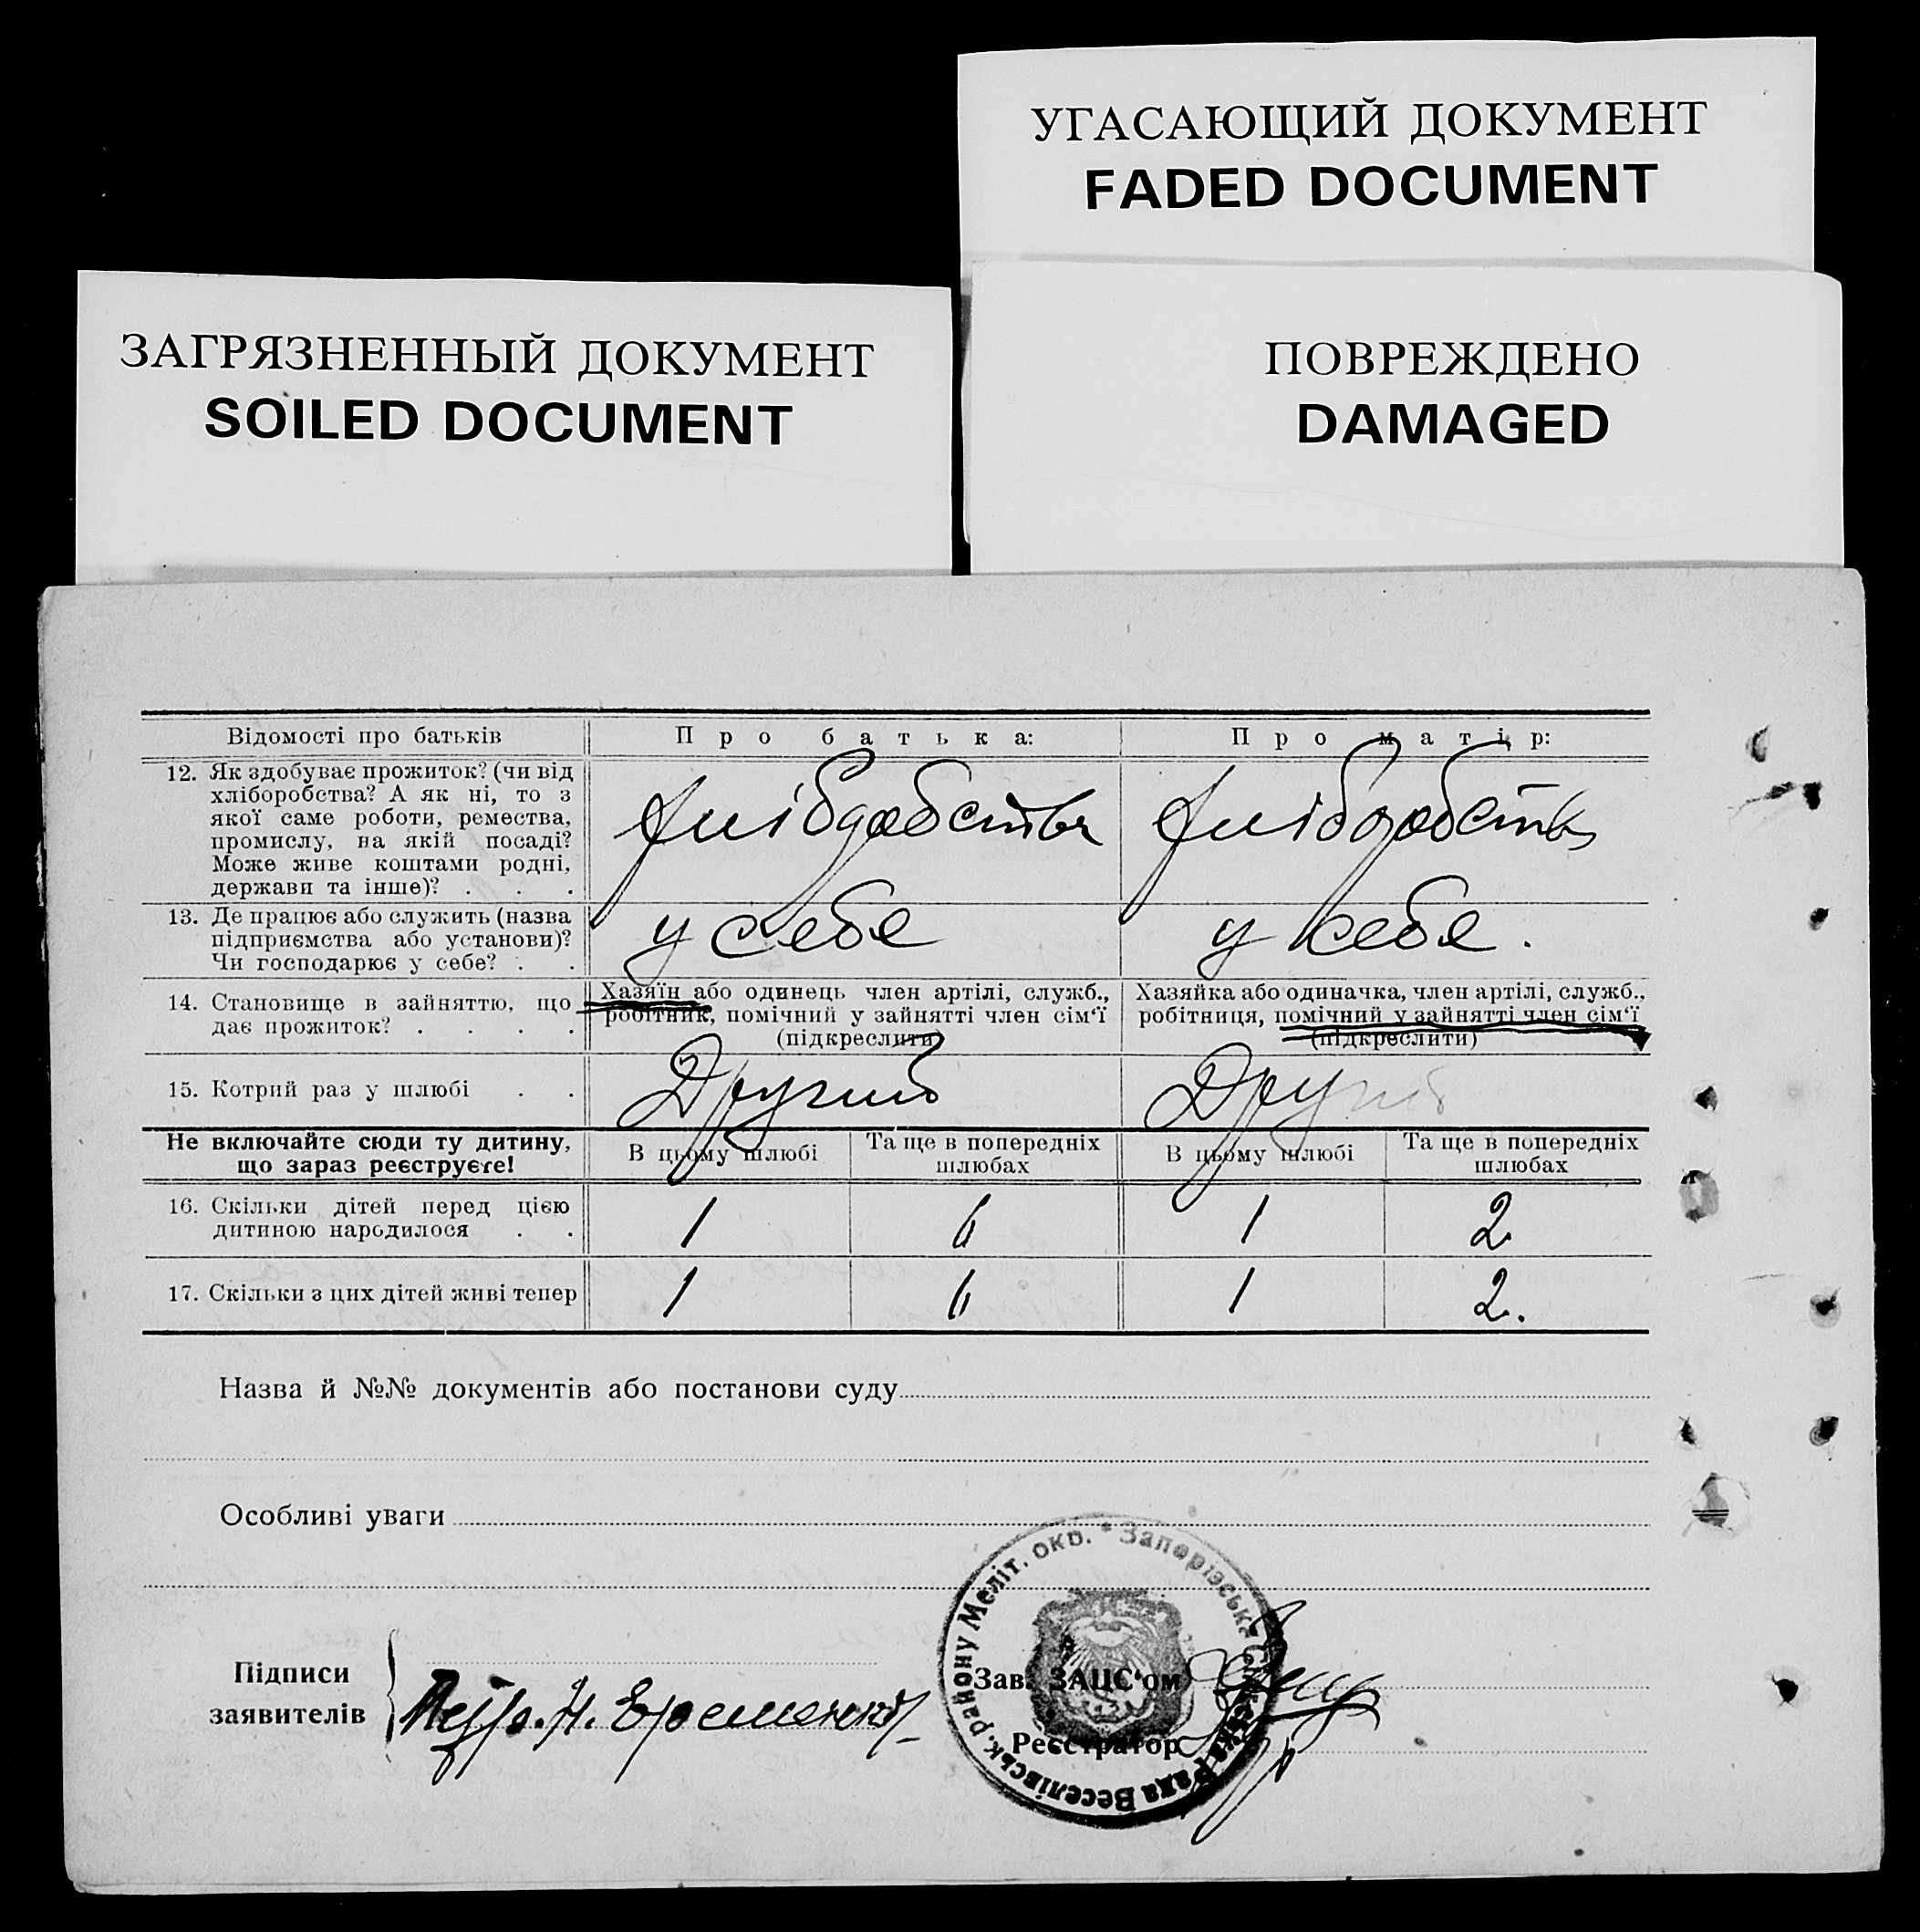 УГАСАЮЩИЙ ДОКУМЕНТ
FADED DOCUMENT
ЗАГРЯЗНЕННЫЙ ДОКУМЕНТ
SOILED DOCUMENT
ПОВРЕЖДЕНО
DAMAGED
Відомості про батьків
Про батька:
Про матір:
12. Як здобуває прожиток? (чи від
хліборобства? А як ні, то з
якої саме роботи, ремества,
промислу, на якій посаді?
Може живе коштами родні,
держави та інше)? . . .
13. Де працює або служить (назва
підприємства або установи)?
Чи господарює у себе? . .
у себе
у себе.
14. Становище в зайняттю, що
дає прожиток? . . . .
Хазяїн або одинець член артілі, служб.,
робітник, помічний у зайнятті член сім‘ї
(підкреслити)
Хазяйка або одиначка, член артілі, служб.,
робітниця, помічний у зайнятті член сім‘ї
(підкреслити)
15. Котрий раз у шлюбі . .
Другий
Другий
Не включайте сюди ту дитину,
що зараз реєструєте!
В цьому шлюбі
Та ще в попередніх
шлюбах
В цьому шлюбі
Та ще в попередніх
шлюбах
16. Скільки дітей перед цією
дитиною народилося . .
1
6
1
2
17. Скільки з цих дітей живі тепер
1
6
1
2.
Назва й №№ документів або постанови суду
Особливі уваги
Підписи
заявителів
Еременко
Зав. ЗАЦС‘ом
Реєстратор
Рада Веселівськ. району Меліт. окр. * Запорізська